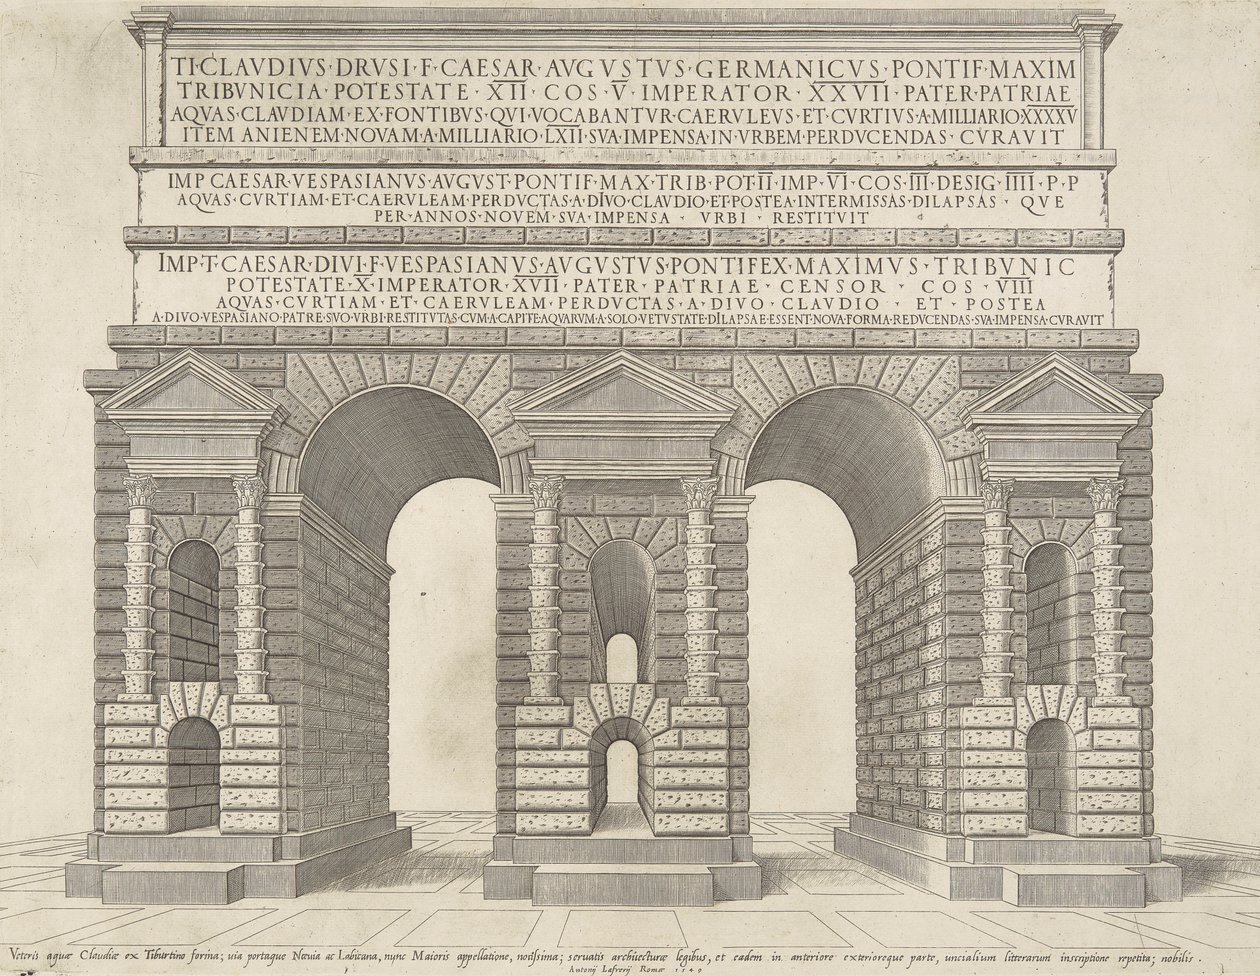 TI·CLAVDIVS·DRVSI·F·CAESAR·AVGVSTVS·GERMANICVS·PONTIF·MAXIM
TRIBVNICIA·POTESTATE·XII·COS·V·IMPERATOR·XXVII·PATER·PATRIAE
AQVAS·CLAVDIAM·EX·FONTIBVS·QVI·VOCABANTVR·CAERVLEVS·ET·CVRTIVS·A·MILLIARIO·XXXXV
ITEM ANIENEM·NOVAM·A·MILLIARIO·LXII·SVA·IMPENSA·IN·VRBEM·PERDVCENDAS·CVRAVIT
IMP·CAESAR·VESPASIANVS·AVGVST·PONTIF·MAX·TRIB·POT·II·IMP·VI·COS·III·DESIG·IIII·P·P
AQVAS·CVRTIAM·ET·CAERVLEAM·PERDVCTAS·A·DIVO·CLAVDIO·ET·POSTEA·INTERMISSAS·DILAPSAS·QVE
PER·ANNOS·NOVEM·SVA·IMPENSA·VRBI·RESTITVIT
IMP·T·CAESAR·DIVI·F·VESPASIANVS·AVGVSTVS·PONTIFEX·MAXIMVS·TRIBVNIC
POTESTATE·X·IMPERATOR·XVII·PATER·PATRIAE·CENSOR·COS·VIII
AQVAS·CVRTIAM·ET·CAERVLEAM·PERDVCTAS·A·DIVO·CLAVDIO·ET·POSTEA
A·DIVO·VESPASIANO·PATRE·SVO·VRBI·RESTITVTAS·CVM·A·CAPITE·AQVARVM·A·SOLO·VETVSTATE·DILAPSAE·ESSENT·NOVA·FORMA·REDVCENDAS·SVA·IMPENSA·CVRAVIT
Veteris aquæ Claudiæ ex Tiburtino forma; uia portaque Næuia ac Labicana, nunc Maioris appellatione, notissima; seruatis architecturæ legibus, et eadem in anteriore exterioreque parte, uncialium litterarum inscriptione repetita; nobilis.
Antonij Lafrerij Romæ 1549